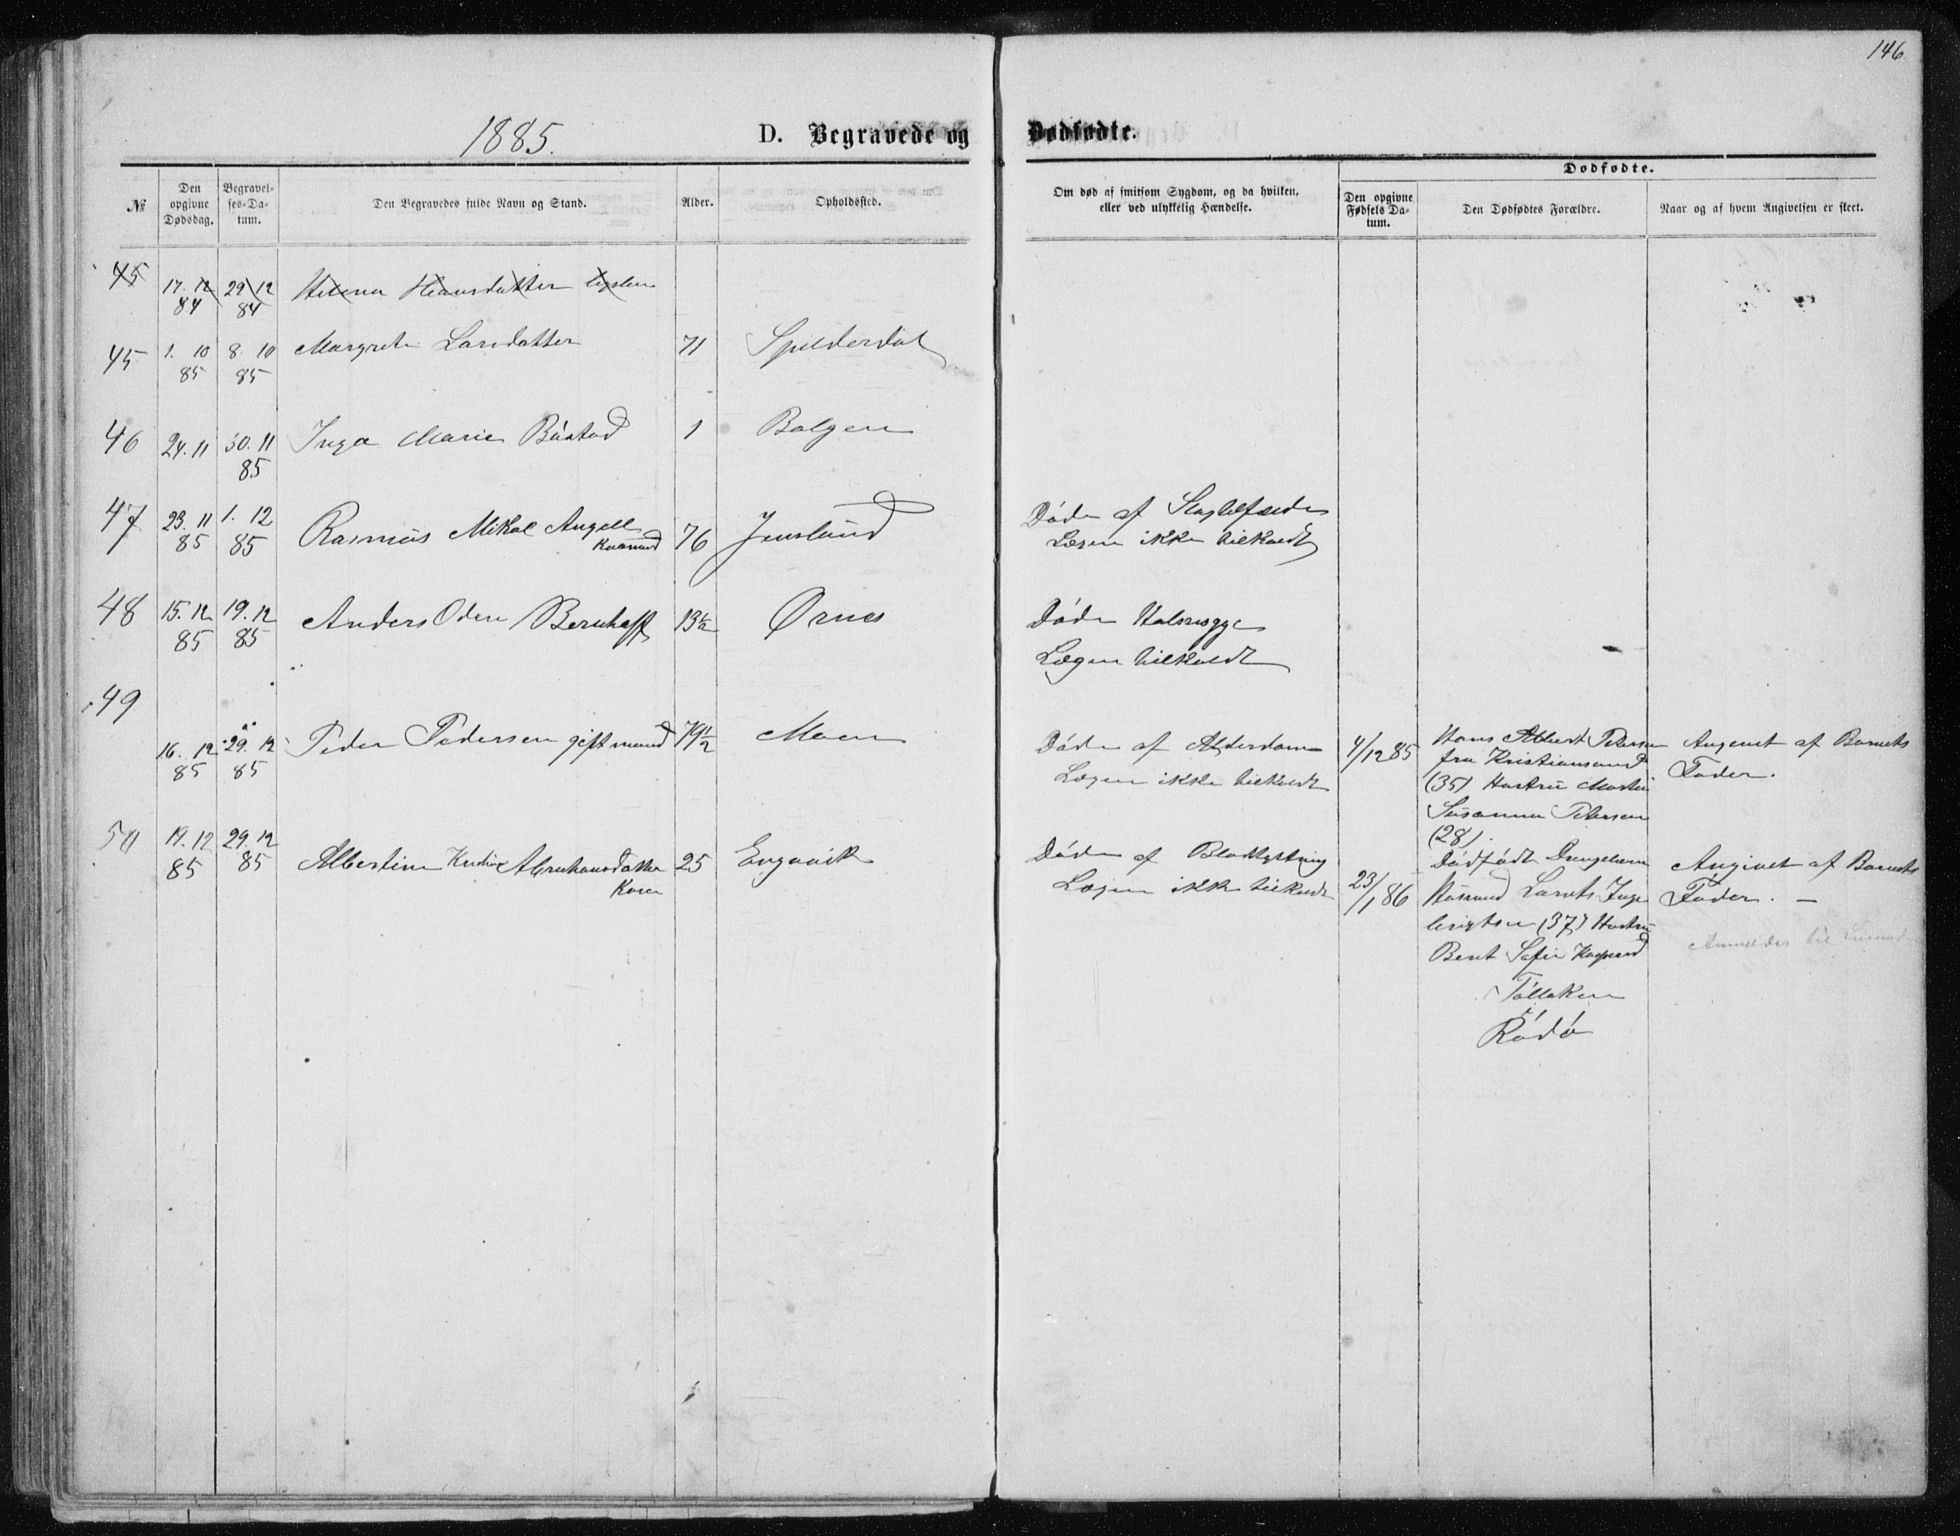 146
1885.
D. Begravede og Dødfødte.
Dødfødte.
№
Den opgivne Dødsdag.
Begravel-
ses-Da-
tum.
Den Begravedes fulde Navn og Stand.
Alder.
Opholdssted.
Om død af smitsom Sygdom, og da hvilken,
eller ved ulykkelig Hændelse.
Den opgivne
Fødsels Da-
tum.
Den Dødfødtes Forældre.
Naar og af hvem Angivelsen er skeet.
45 17. 12 84 29 12 84 Helena Hansdatter
45 1. 10 85 8. 10 85 Margrete Larsdatter 71 Spilderdal
46 24. 11 30. 11 85 Inga Marie Båstad 1 Bolgen
47 23. 11 85 1. 12 85 Rasmus Mikal Angell 76 Jenslund
Døde af Slagtilfælde
Lægen ikke tilkaldt
48 15. 12 85 19. 12 85 Anders Oden Bernhoft 13½ Ørnes
Døde
Lægen tilkaldt
49
16. 12 85 29. 12 85 Peder Pedersen gift mand 79½ Moen
Døde af Alderdom
Lægen ikke tilkaldt
4/12 85
Hans Albert Petersen
fra Kristiansund
(35) Hustru
Susanna Petersen
(28).
Angivet af Barnets
Fader.
50 19. 12 85 29. 12 85 Albertine Abrahamsdatter 25 Engavik
Kone
Døde af Blodstyrtning
Lægen ikke tilkaldt
23/1 86
Dødfødt Drengebarn
Husmand Lornts Inge
brigtsen (37) Hustru
Bent Sofie
Rødø
Angivet af Barnets
Fader. —
Anmeldes til